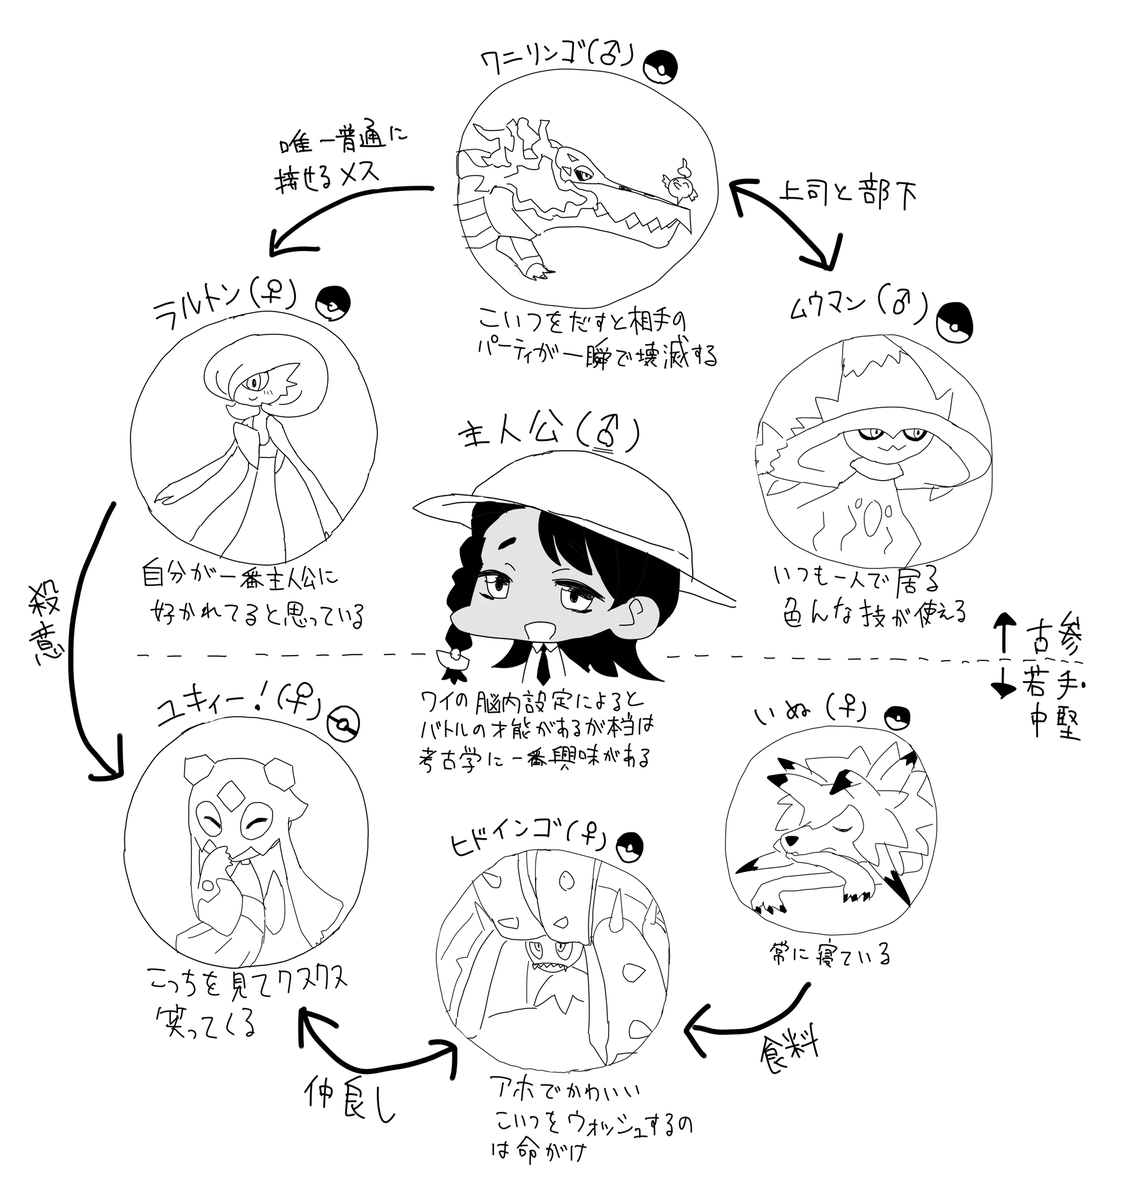 ワニリンゴ(♂)
唯一普通に
接せるメス
上司と部下
こいつをだすと相手の
パーティが一瞬で壊滅する
ラルトン(♀)
ムウマン(♂)
主人公(♂)
自分が一番主人公に
好かれてると思っている
いつも一人で居る
色んな技が使える
殺意
↑古参
↓若手・
中堅
ワイの脳内設定によると
バトルの才能があるが本当は
考古学に一番興味がある
ユキィー!(♀)
いぬ(♀)
ヒドインゴ(♀)
こっちを見てクスクス
笑ってくる
常に寝ている
仲良し
食料
アホでかわいい
こいつをウォッシュするの
は命がけ